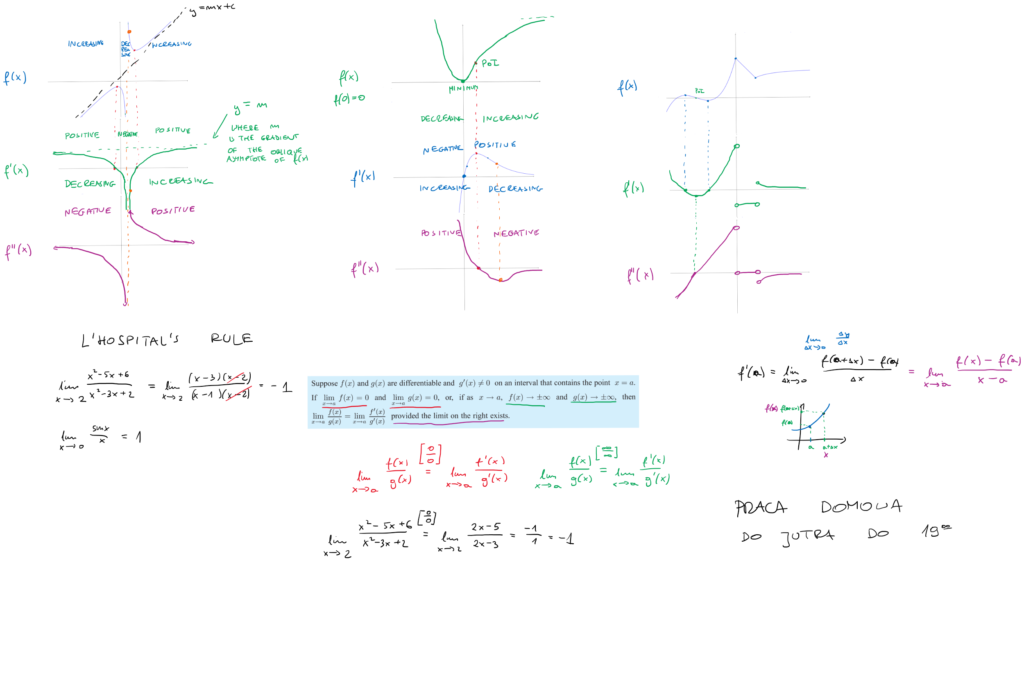 y = mx + c
INCREASING
INCREASING
f(x)
POSITIVE
POSITIVE
y = m
WHERE m
IS THE GRADIENT
OF THE OBLIQUE
ASYMPTOTE OF f(x)
f'(x)
DECREASING
INCREASING
NEGATIVE
POSITIVE
f''(x)
f(x)
f(0)=0
PoI
MINIMUM
DECREASING
INCREASING
NEGATIVE
POSITIVE
f'(x)
INCREASING
DECREASING
POSITIVE
NEGATIVE
f''(x)
f(x)
PoI
f'(x)
f''(x)
L'HOSPITAL'S RULE
lim x→2 (x²-5x+6)/(x²-3x+2) = lim x→2 ((x-3)(x-2))/((x-1)(x-2)) = -1
lim x→0 sinx/x = 1
Suppose f(x) and g(x) are differentiable and g'(x) ≠ 0 on an interval that contains the point x = a.
If lim x→a f(x) = 0 and lim x→a g(x) = 0, or, if as x → a, f(x) → ±∞ and g(x) → ±∞, then
lim x→a f(x)/g(x) = lim x→a f'(x)/g'(x) provided the limit on the right exists.
lim x→a f(x)/g(x) [0/0] = lim x→a f'(x)/g'(x)
lim x→a f(x)/g(x) [∞/∞] = lim x→a f'(x)/g'(x)
lim x→2 (x²-5x+6)/(x²-3x+2) [0/0] = lim x→2 (2x-5)/(2x-3) = -1/1 = -1
lim Δx→0 Δy/Δx
f'(a) = lim Δx→0 (f(a+Δx) - f(a))/Δx = lim x→a (f(x) - f(a))/(x - a)
f(x) f(a+Δx)
f(a)
a a+Δx
x
PRACA DOMOWA
DO JUTRA DO 19⁰⁰